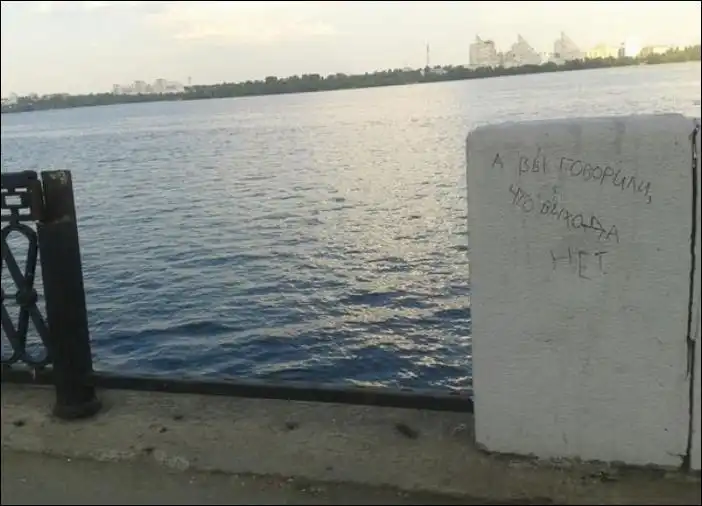 А ВЫ ГОВОРИЛИ,
ЧТО ВЫХОДА
НЕТ